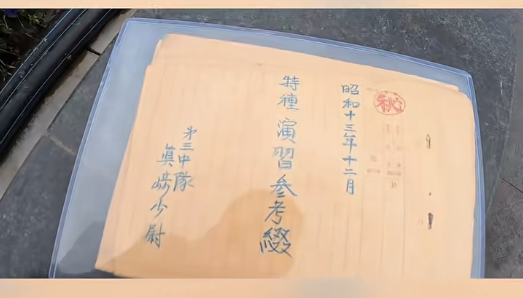 秘
昭和十三年十二月
特種演習参考綴
第三中隊
眞崎少尉